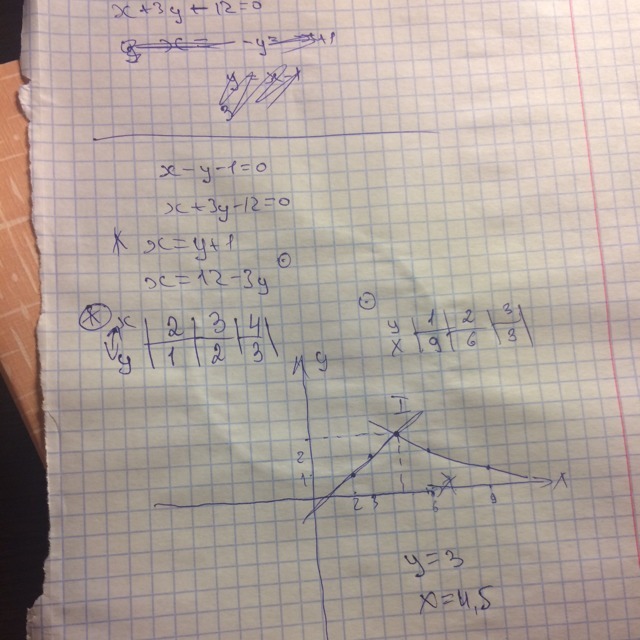 x+3y+12=0
x-y-1=0
x+3y-12=0
x=y+1
x=12-3y
x | 2 | 3 | 4 |
y | 1 | 2 | 3 |
y | 1 | 2 | 3 |
x | 9 | 6 | 3 |
y
I
2
1
x
2 3 6 9
y=3
x=4,5